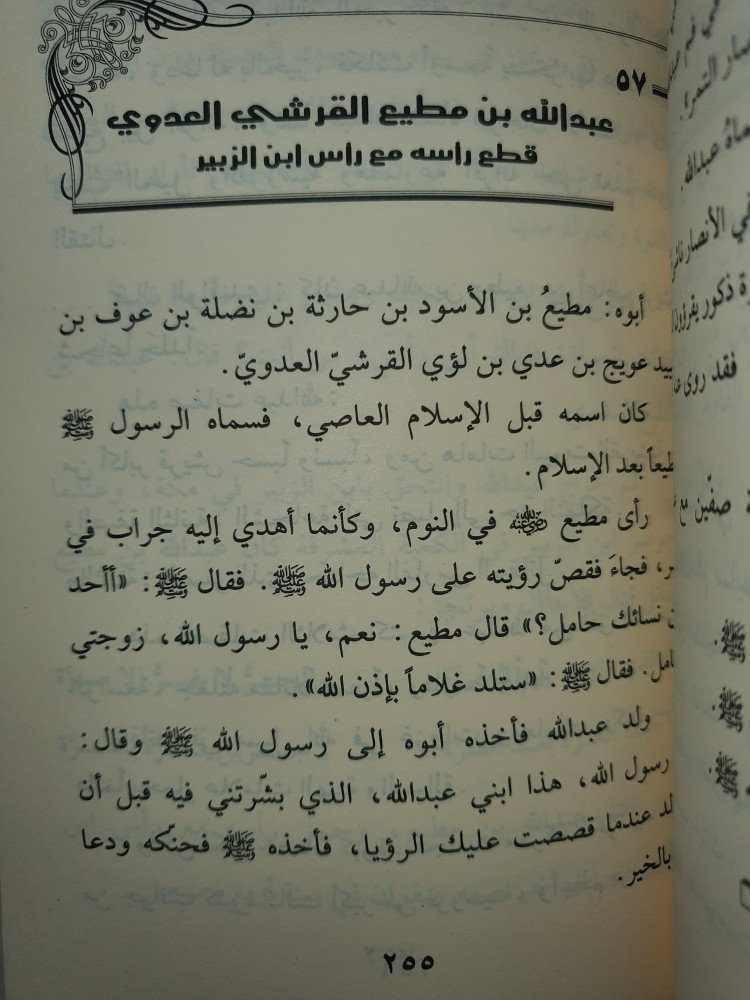 ٥٧
عبدالله بن مطيع القرشي العدوي
قطع راسه مع راس ابن الزبير
أبوه: مطيعُ بن الأسود بن حارثة بن نضلة بن عوف بن
عويج بن عدي بن لؤي القرشيّ العدويّ.
كان اسمه قبل الإسلام العاصي، فسماه الرسول ﷺ
بعد الإسلام.
رأى مطيع رضي الله عنه في النوم، وكأنما أهدي إليه جراب في
فجاءَ فقصّ رؤيته على رسول الله ﷺ. فقال ﷺ: «أأحد
نسائك حامل؟» قال مطيع: نعم، يا رسول الله، زوجتي
فقال ﷺ: «ستلد غلاماً بإذن الله».
ولد عبدالله فأخذه أبوه إلى رسول الله ﷺ وقال:
رسول الله، هذا ابني عبدالله، الذي بشّرتني فيه قبل أن
عندما قصصت عليك الرؤيا، فأخذه ﷺ فحنّكه ودعا
بالخير.
٢٥٥
في فم
التمر؛
عبدالله.
في الأنصار
ذكور
فقد روى
صفّين مع
ﷺ.
ﷺ.
ﷺ.